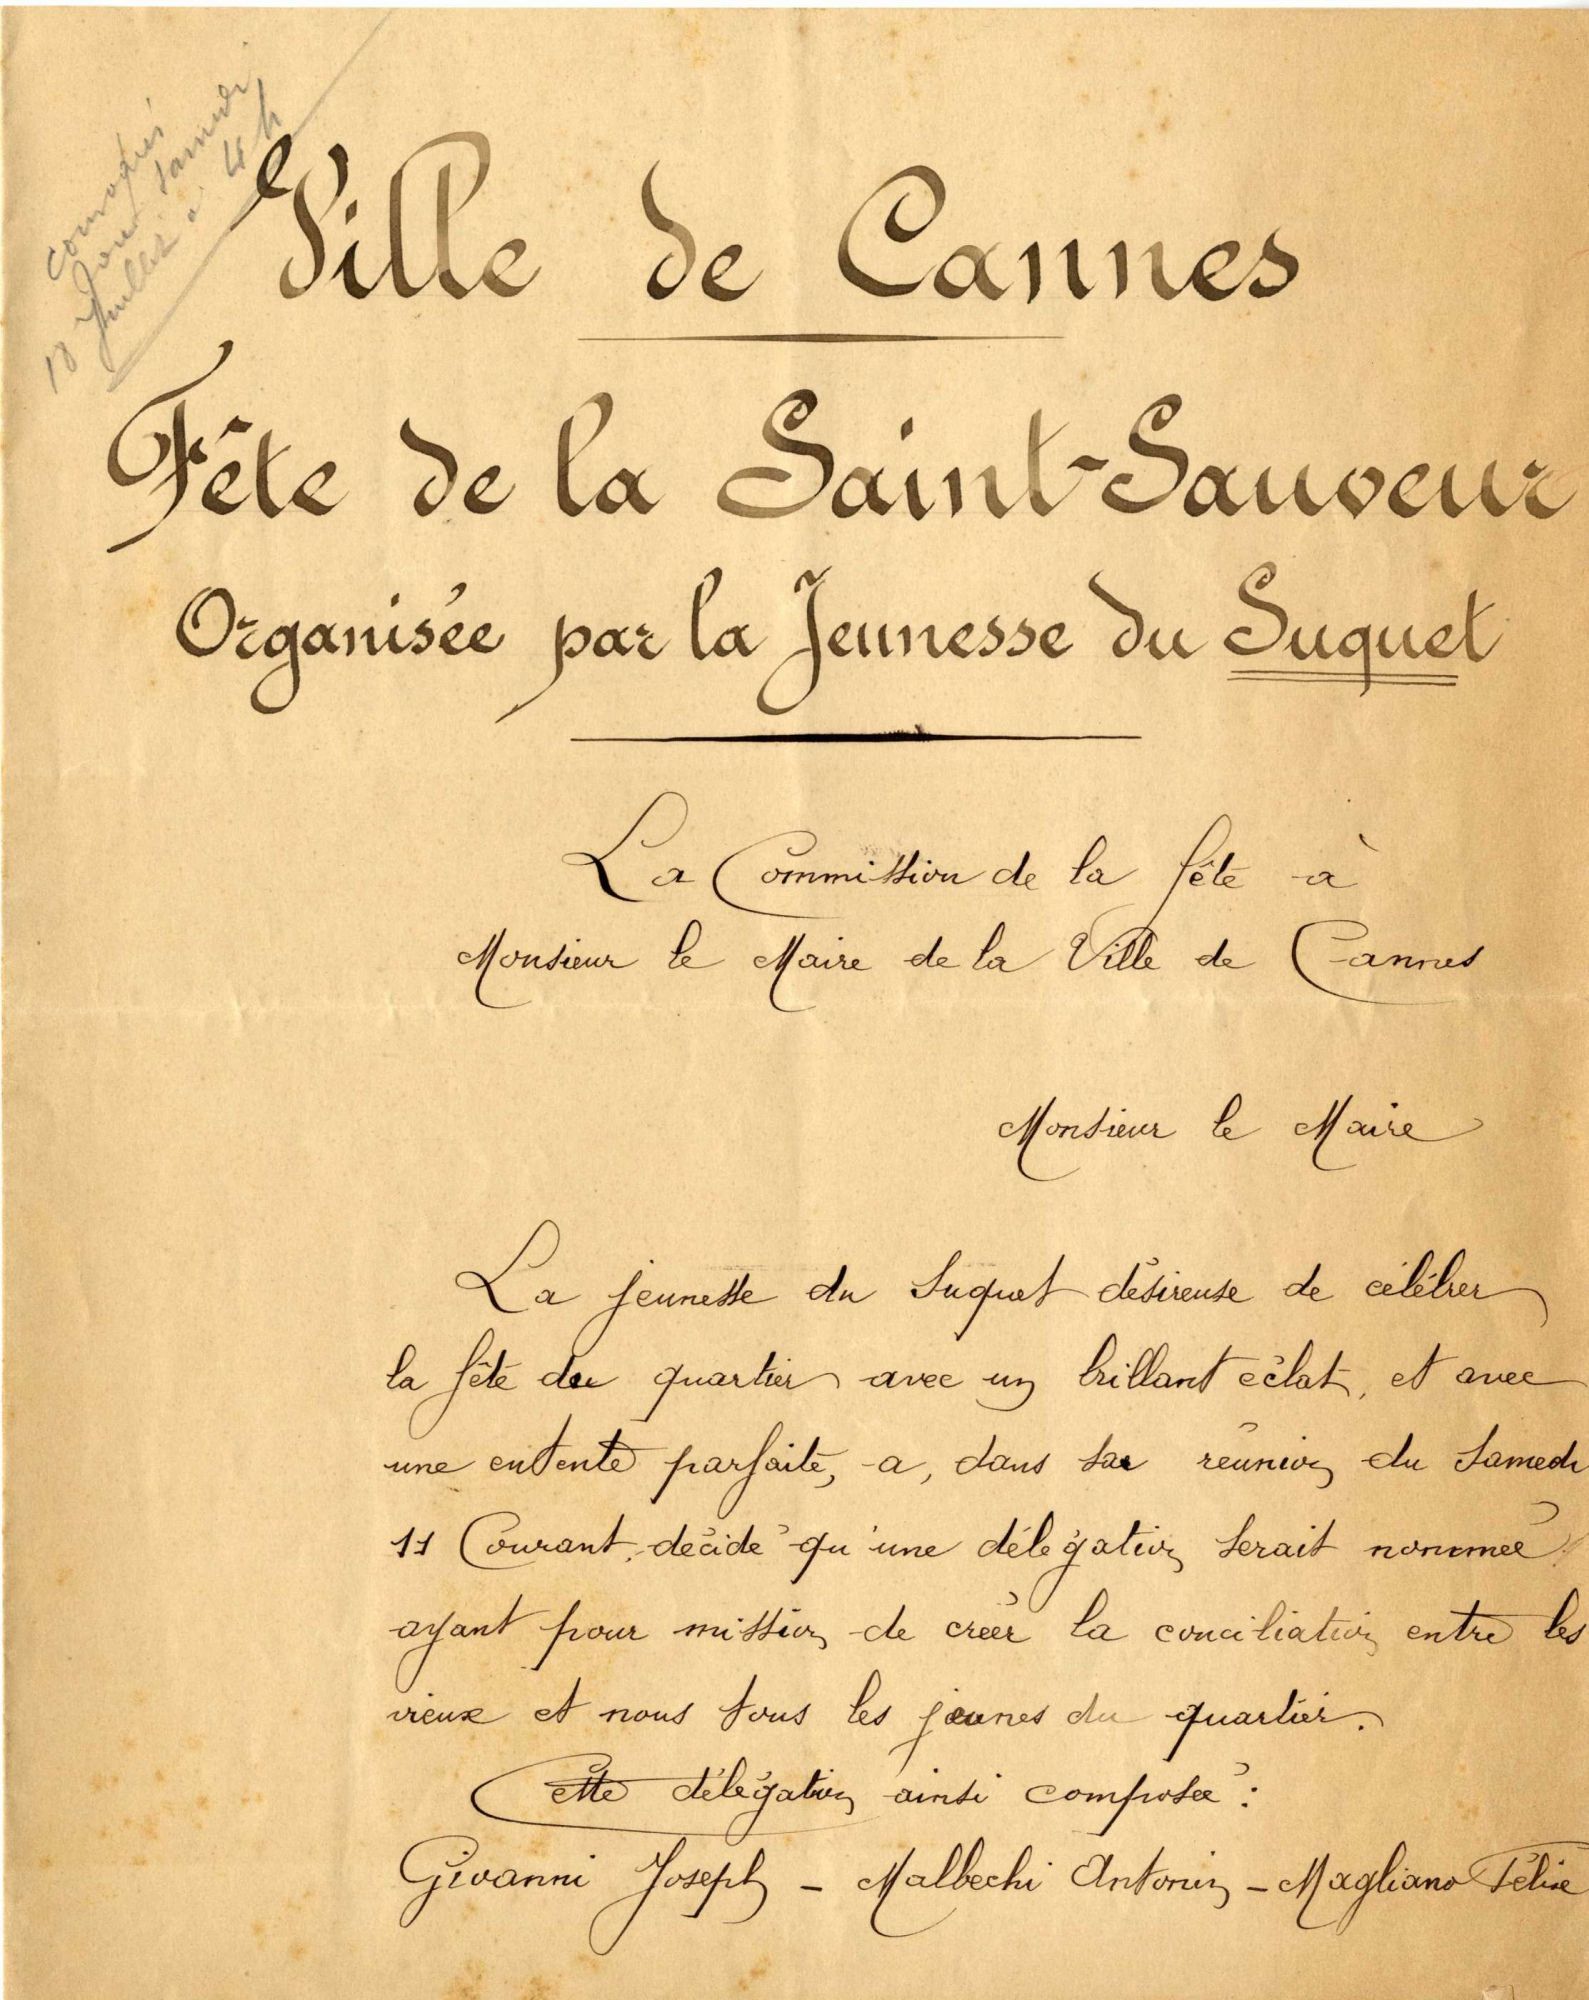 convoqués
pour samedi
18 Juillet à 4h
Ville de Cannes
Fête de la Saint-Sauveur
Organisée par la Jeunesse du Suquet
La Commission de la fête à
Monsieur le Maire de la Ville de Cannes
Monsieur le Maire
La jeunesse du Suquet désireuse de célébrer
la fête du quartier avec un brillant éclat, et avec
une entente parfaite, a, dans sa réunion du Samedi
11 Courant, décidé qu'une délégation serait nommée
ayant pour mission de créer la conciliation entre les
vieux et nous tous les jeunes du quartier.
Cette délégation ainsi composée :
Giovanni Joseph - Malbechi Antonin - Magliano Félix